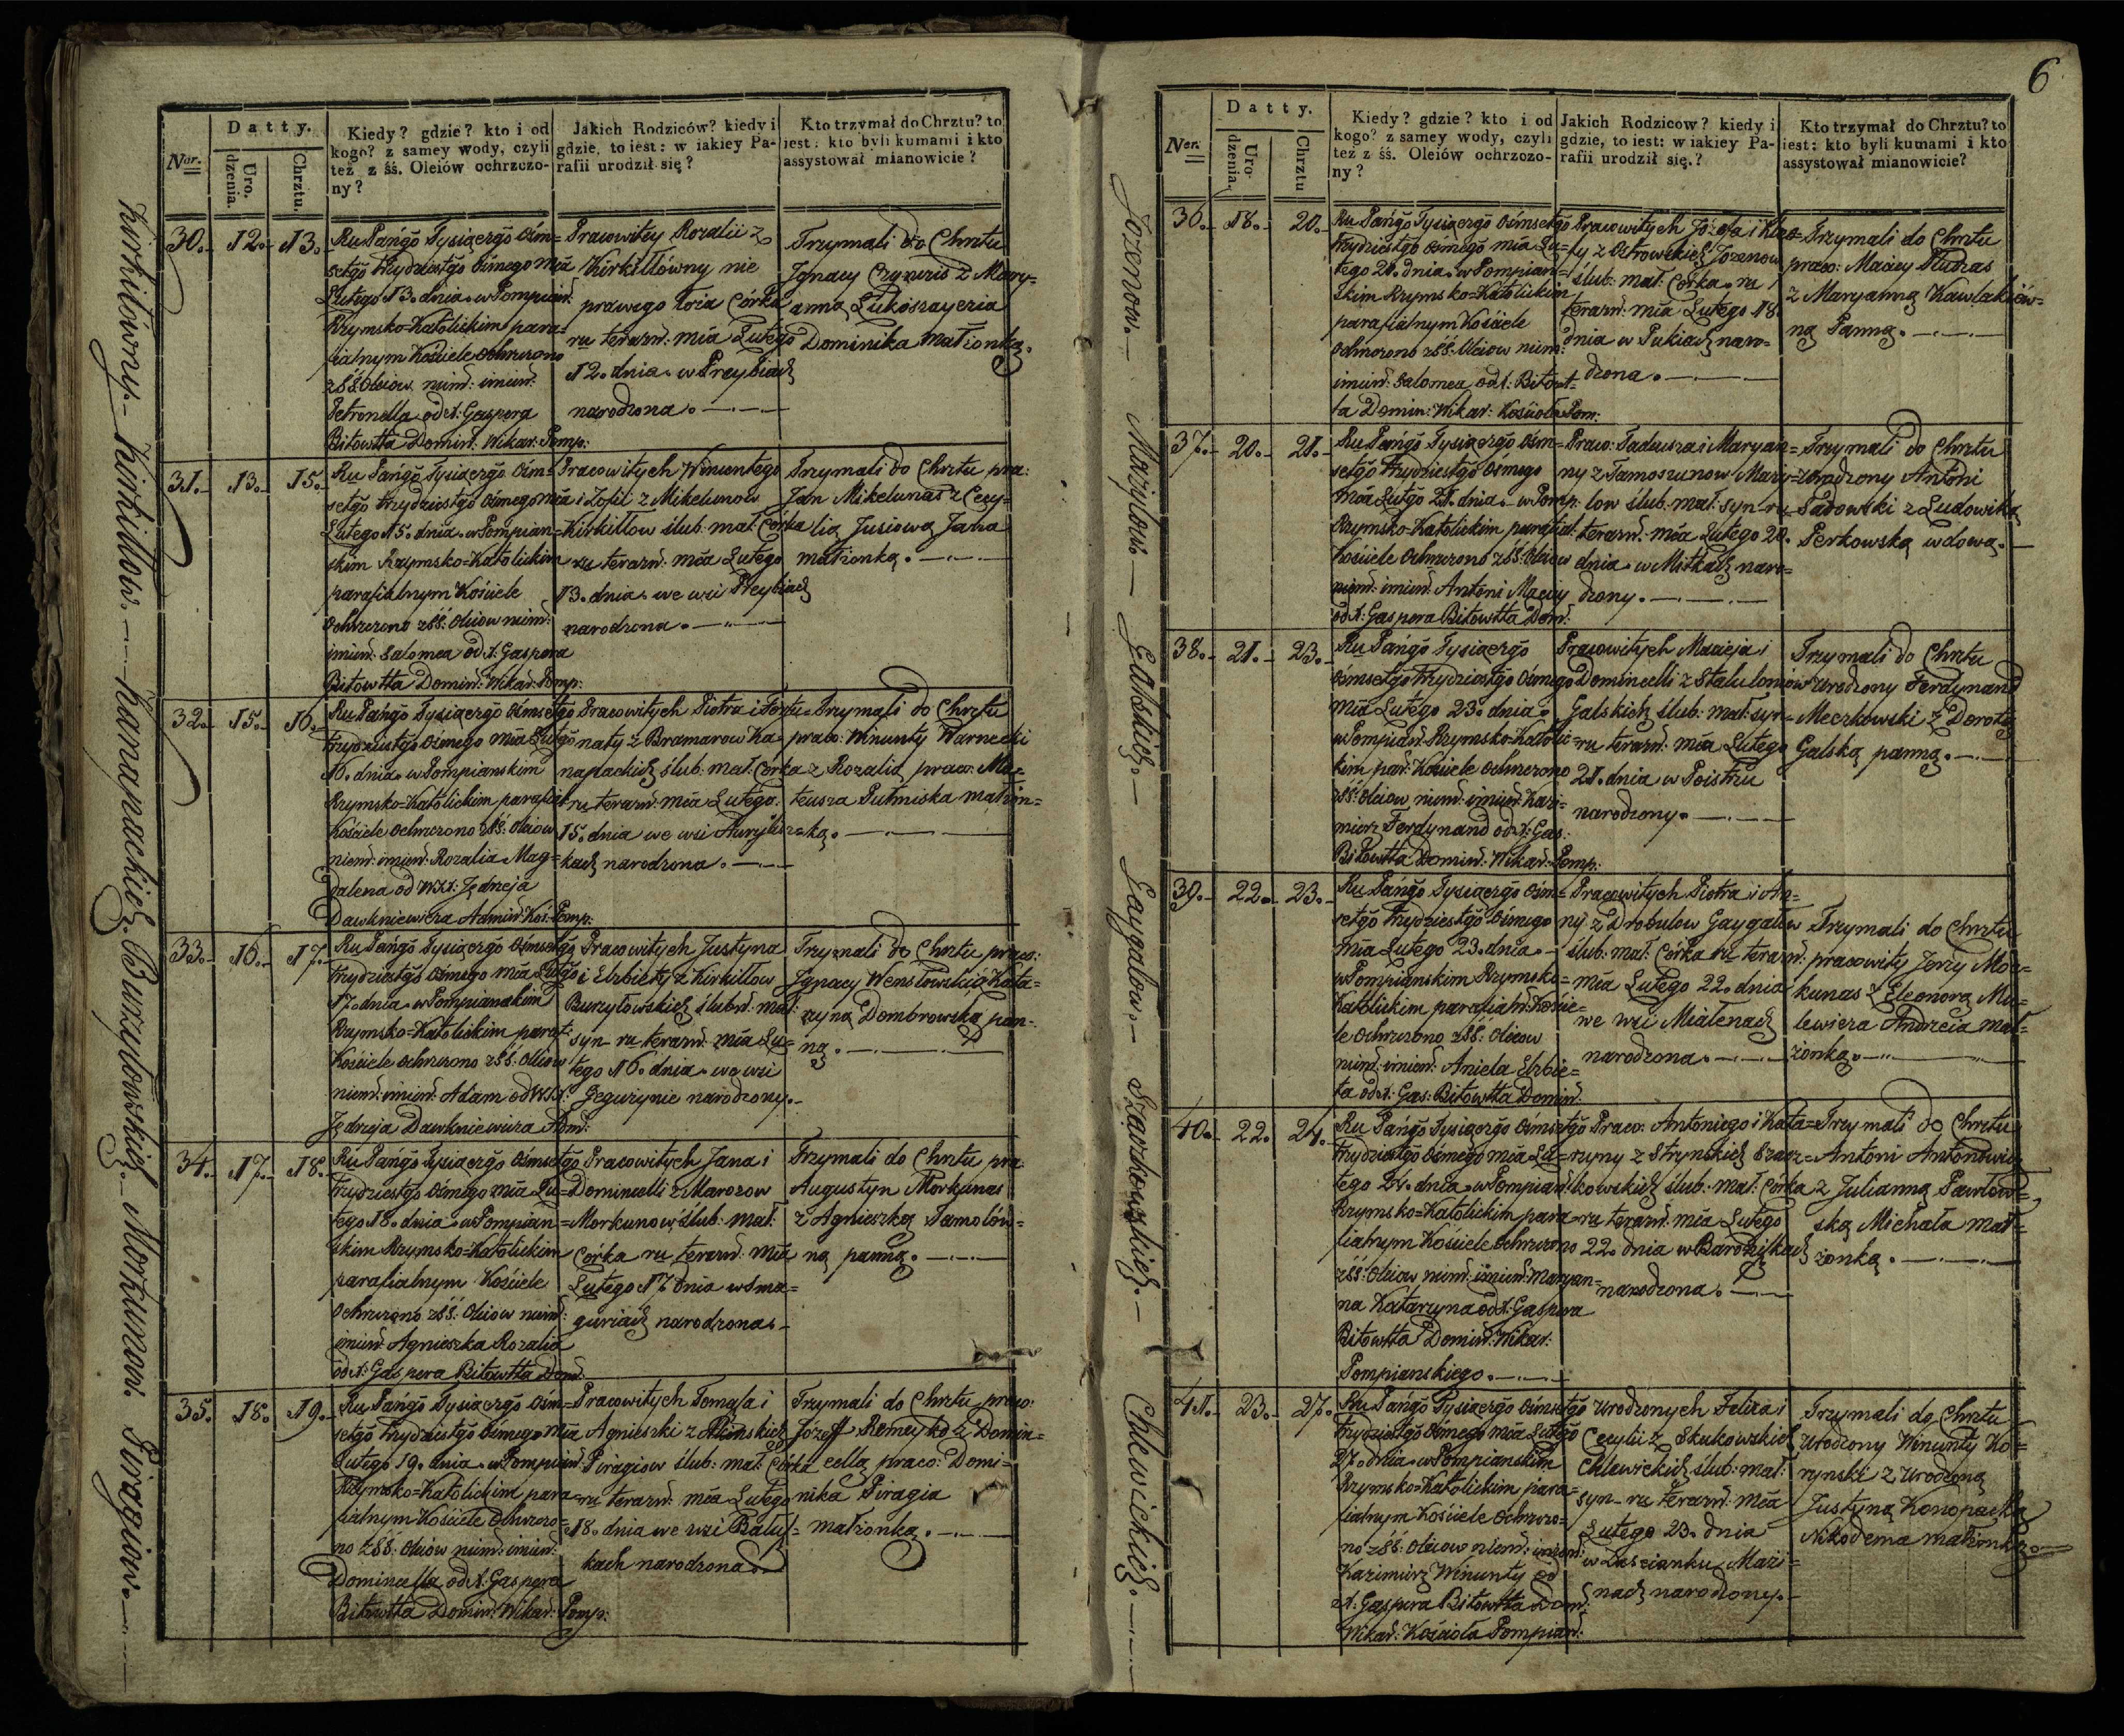 6
Nar.
Datty.
Uro.
dzenia.
Chrztu.
Kiedy? gdzie? kto i od
kogo? z samey wody, czyli
też z śś. Oleiów ochrzczo-
ny?
Jakich Rodziców? kiedy i
gdzie, to iest: w iakiey Pa-
rafii urodził się?
Kto trzymał do Chrztu? to
iest: kto byli kumami i kto
assystował mianowicie?
Kirkiłówny.– Kirkiłłow.– Kanapackich. Burzytowskich.– Morkunow. Piragiow.–
30. 12. 13.
Ru Pańgo Tysiącrgo Ośm=
setgo trzydziestgo Ośmego mca
Lutego 13. dnia w Pompian:
Rzymsko-Katolickim para=
fialnym Kościele Ochrzczono
z SS. Oleiow niem: imien:
Petronella od X. Gaspera
Bitowtta Domin: Wikar: Pomp:
Pracowitey Rozalii z
Kirkiłłówny nie
prawego łoża Córka
ru terazn: mca Lutego
12. dnia w Preybiach
narodzona.
Trzymali do Chrztu
Ignacy Czyżis z Mary=
anną Łukoszayczia
Dominika małżonką.
31. 13. 15.
Ru Pańgo Tysiącrgo Ośm=
setgo trzydziestgo Ośmego mca
Lutego 15. dnia w Pompian=
skim Rzymsko=Katolickim
parafialnym Kościele
Ochrzczono z SS. Oleiow niem:
imien: Salomea od X. Gaspera
Bitowtta Domin: Wikar: Pomp:
Pracowitych Wincentego
i Zofii z Mikelunow
Kirkiłłow ślub: mał: Córka
ru terazn: mca Lutego
13. dnia we wsi Preybiach
narodzona.
Trzymali do Chrztu pra:
Jan Mikelunas z Cecy=
lią Jusiową Jana
małżonką.
32. 15. 16.
Ru Pańgo Tysiącrgo Ośmsetgo
trzydziestgo Ośmego mca Lutego
16. dnia w Pompianskim
Rzymsko=Katolickim parafial:
Kościele Ochrzczono z SS. Oleiow
niem: imien: Rozalia Mag=
dalena od WJX: Jędrzeja
Dawkniewicza Admin: Koś: Pomp:
Pracowitych Piotra i Fortu=
naty z Bramarow Ka=
napackich ślub: mał: Córka
ru terazn: mca Lutego
15. dnia we wsi Aurylisz=
kach narodzona.
Trzymali do Chrztu
praco: Wincenty Warnecki
z Rozalią praco: Ma=
teusza Putniska małżon=
ką.
33. 16. 17.
Ru Pańgo Tysiącrgo Ośmsetgo
trzydziestgo Ośmego mca Lutgo
17. dnia w Pompianskim
Rzymsko=Katolickim paraf:
Kościele Ochrzczono z SS. Oleiow
niem: imien: Adam od WJX:
Jędrzeja Dawkniewicza Adm:
Pracowitych Justyna
i Elzbiety z Kirkiłłow
Burzytowskich ślubn: mał:
syn ru terazn: mca Lu=
tego 16. dnia we wsi
Geguzynie narodzony.
Trzymali do Chrztu praco:
Ignacy Wensłowski z Kata=
rzyną Dombrowską pan=
ną.
34. 17. 18.
Ru Pańgo Tysiącrgo Ośmsetgo
trzydziestgo Ośmego mca Lu=
tego 18. dnia w Pompian=
skim Rzymsko=Katolickim
parafialnym Kościele
Ochrzczono z SS. Oleiow niem:
imien: Agnieszka Rozalia
od X: Gaspera Bitowtta Dom:
Pracowitych Jana i
Domincelli z Marozow
Morkunow ślub: mał:
Córka ru terazn: mca
Lutego 17 dnia w Sma=
guriach narodzona.
Trzymali do Chrztu pra:
Augustyn Morkunas
z Agnieszką Jamolów=
ną panną.
35. 18. 19.
Ru Pańgo Tysiącrgo Ośm=
setgo trzydziestgo Ośmego mca
Lutego 19. dnia w Pompian:
Rzymsko=Katolickim para=
fialnym Kościele Ochrzczo=
no z SS. Oleiow niem: imien:
Domincella od X. Gaspera
Bitowtta Domin: Wikar: Pomp:
Pracowitych Tomasza i
Agnieszki z
Piragiow ślub: mał: Córka
ru terazn: mca Lutego
18. dnia we wsi Balus=
kach narodzona.
Trzymali do Chrztu praco:
Józeff Remeyko z Domin=
cellą praco: Domi=
nika Piragia
małżonką.
Ner.
Datty.
Uro.
dzenia.
Chrztu
Kiedy? gdzie? kto i od
kogo? z samey wody, czyli
też z śś. Oleiów ochrzczo-
ny?
Jakich Rodziców? kiedy i
gdzie, to iest: w iakiey Pa-
rafii urodził się.?
Kto trzymał do Chrztu? to
iest: kto byli kumami i kto
assystował mianowicie?
Jozenow.– Mazylow.– Galskich.– Gaygalow.– Szarkowskich.– Chlewickich.–
36. 18. 20.
Ru Pańgo Tysiącrgo Ośmsetgo
trzydziestgo Ośmego mca Lu=
tego 20. dnia w Pompian=
skim Rzymsko=Katolickim
parafialnym Kościele
Ochrzczono z SS. Oleiow niem:
imien: Salomea od X: Bitowt=
ta Domin: Wikar: Kościoła Pom:
Pracowitych Józefa i Klao=
ty z Ostrowskich Jozenow
ślub: mał: Córka ru
terazn: mca Lutego 18.
dnia w Pukiach naro=
dzona.
Trzymali do Chrztu
praco: Maciey Dudras
z Maryanną Kawlakiów=
ną Panną.
37. 20. 21.
Ru Pańgo Tysiącrgo Ośm=
setgo trzydziestgo Ośmego
mca Lutgo 21. dnia w Pomp:
Rzymsko=Katolickim parafial:
Kościele Ochrzczono z SS. Oleiow
niem: imien: Antoni Maciey
od X: Gaspera Bitowtta Dom:
Praco: Tadeusza i Maryan=
ny z Tamoszunow Mazy=
low ślub: mał: syn ru
terazn: mca Lutego 20.
dnia w Mitkach naro=
dzony.
Trzymali do Chrztu
urodzony Antoni
Sadowski z Ludowiką
Perkowską wdową.
38. 21. 23.
Ru Pańgo Tysiącrgo
Ośmsetgo trzydziestgo Ośmego
mca Lutego 23. dnia
w Pompian: Rzymsko=Katolic=
kim par: Kościele Ochrzczono
z SS. Oleiow niem: imien: Kazi=
mierz Ferdynand od X: Gas:
Bitowtta Domin: Wikar: Pomp:
Pracowitych Macieja i
Domincelli z Stalulonow
Galskich ślub: mał: syn
ru terazn: mca Lutego
21. dnia w Poistru
narodzony.
Trzymali do Chrztu
urodzony Ferdynand
Meczkowski z Dorotą
Galską panną.
39. 22. 23.
Ru Pańgo Tysiącrgo Ośm=
setgo trzydziestgo Ośmego
mca Lutego 23. dnia
w Pompianskim Rzymsko=
Katolickim parafialn: Koście=
le Ochrzczono z SS. Oleiow
niem: imien: Aniela Elzbie=
ta od X: Gas: Bitowtta Domin:
Pracowitych Piotra i An=
ny z Drobulow Gaygalow
ślub: mał: Córka ru terazn:
mca Lutego 22. dnia
we wsi Mialenach
narodzona.
Trzymali do Chrztu
pracowity Jerzy Mor=
kunas z Eleonorą Mi=
lewicza Andrzeia mał=
żonką.
40. 22. 24.
Ru Pańgo Tysiącrgo Ośmsetgo
trzydziestgo Ośmego mca Lu=
tego 24. dnia w Pompian:
Rzymsko=Katolickim para=
fialnym Kościele Ochrzczono
z SS. Oleiow niem: imien: Maryan=
na Katarzyna od X: Gaspera
Bitowtta Domin: Wikar:
Pompianskiego.
Praco: Antoniego i Kata=
rzyny z Stryńskich Szar=
kowskich ślub: mał: Córka
ru terazn: mca Lutego
22. dnia w Bardziszkach
narodzona.
Trzymali do Chrztu
Antoni Antonowicz
z Julianną Pawłow=
ską Michała mał=
żonką.
41. 23. 27.
Ru Pańgo Tysiącrgo Ośmsetgo
trzydziestgo Ośmego mca Lutgo
27. dnia w Pompianskim
Rzymsko=Katolickim para=
fialnym Kościele Ochrzczo=
no z SS. Oleiow niem: imien:
Kazimierz Wincenty od
X. Gaspera Bitowtta Dom:
Wikar: Kościoła Pompian:
Urodzonych Felixa i
Cecylii z Skukowskich
Chlewickich ślub: mał:
syn ru terazn: mca
Lutego 23. dnia
w Zaścianku Mazi=
nach narodzony.
Trzymali do Chrztu
Urodzony Wincenty Ko=
rynski z Urodzoną
Justyną Konopacką
Nikodema małżonką.